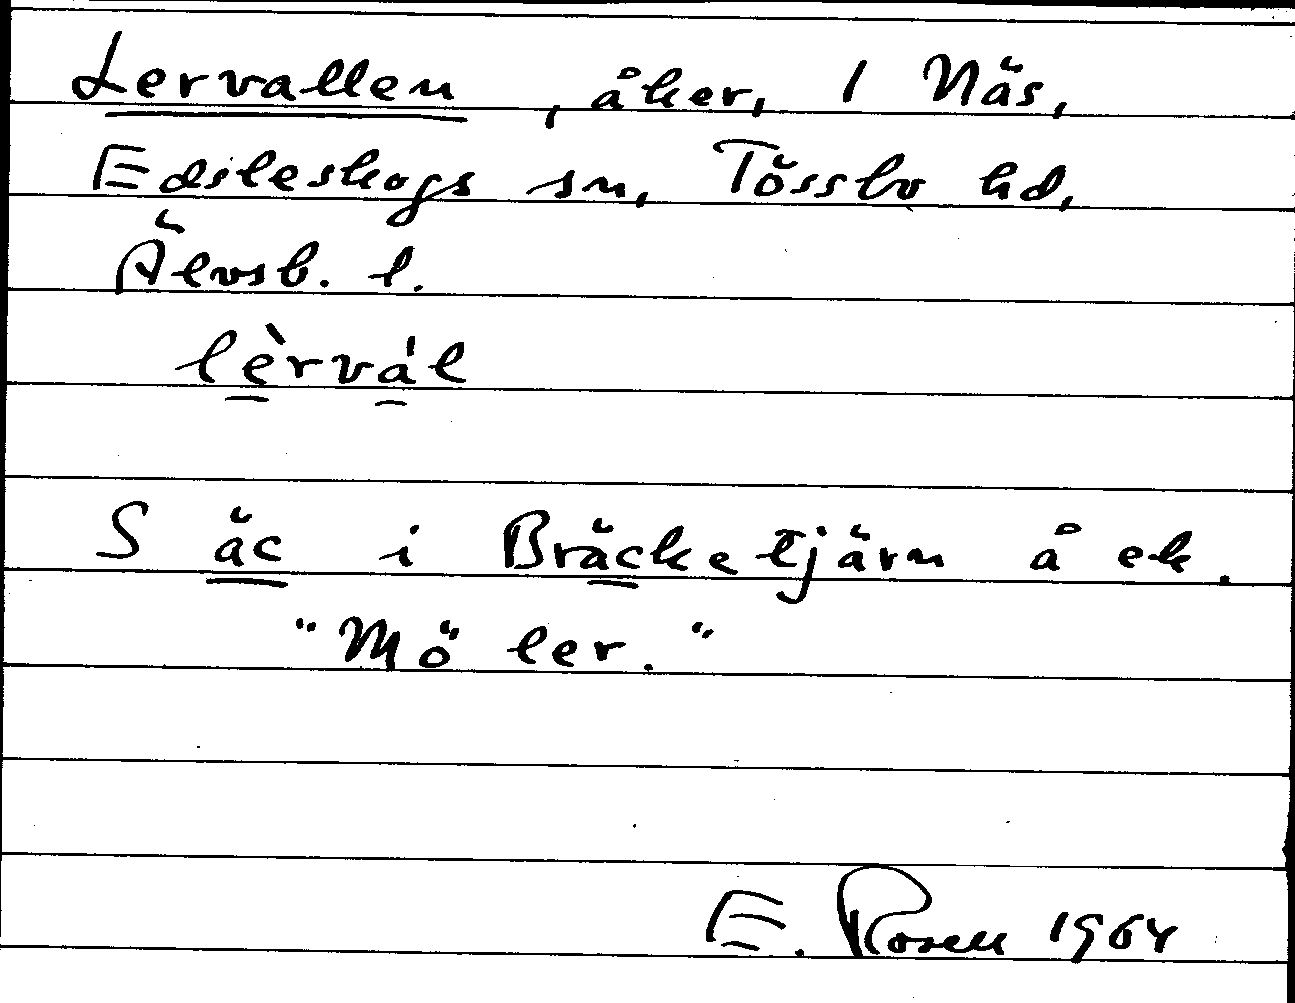 Lervallen, åker, 1 Näs,
Edsleskogs sn, Tössbo hd,
Älvsb. l.
lèrvál
S äc i Bräcketjärn å ek.
"Mö ler."
E. Rosell 1964